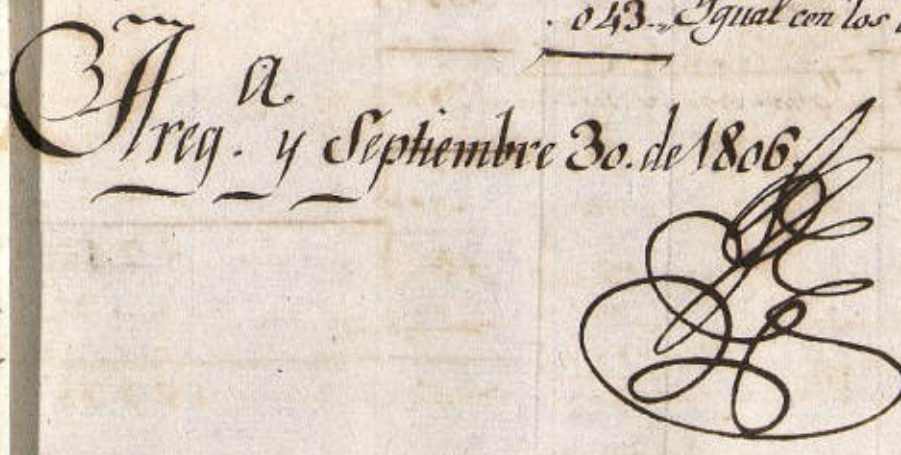 . 043. Igual con los
Areq.ª y Septiembre 30. de 1806.